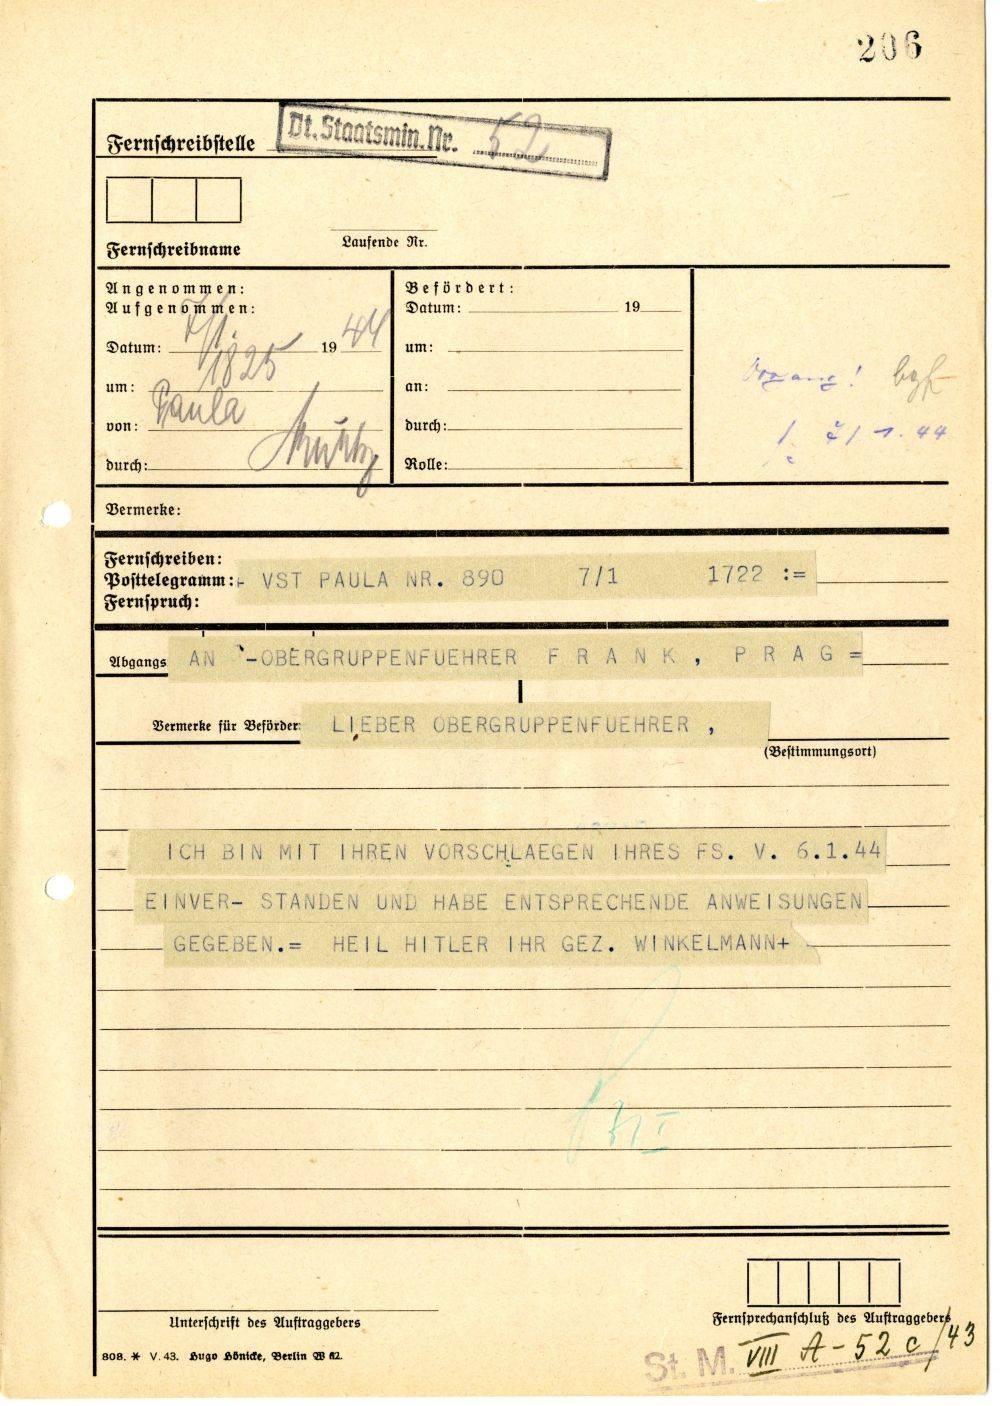 206
Fernschreibstelle
Dt. Staatsmin. Nr. 52
Fernschreibname
Laufende Nr.
Angenommen:
Aufgenommen:
Datum: 7/1. 1944
um: 1825
von: Paula
durch:
Befördert:
Datum: 19
um:
an:
durch:
Rolle:
Vorgang! bgf
/1. 44
Vermerke:
Fernschreiben:
Posttelegramm: - VST PAULA NR. 890 7/1 1722 :=
Fernspruch:
Abgangs AN -OBERGRUPPENFUEHRER F R A N K , P R A G =
Vermerke für Beförder: LIEBER OBERGRUPPENFUEHRER ,
(Bestimmungsort)
ICH BIN MIT IHREN VORSCHLAEGEN IHRES FS. V. 6.1.44
EINVER- STANDEN UND HABE ENTSPRECHENDE ANWEISUNGEN
GEGEBEN.= HEIL HITLER IHR GEZ. WINKELMANN+
Unterschrift des Auftraggebers
Fernsprechanschluß des Auftraggebers
808. * V. 43. Hugo Hönicke, Berlin W 62.
St. M. VIII A - 52 c/43